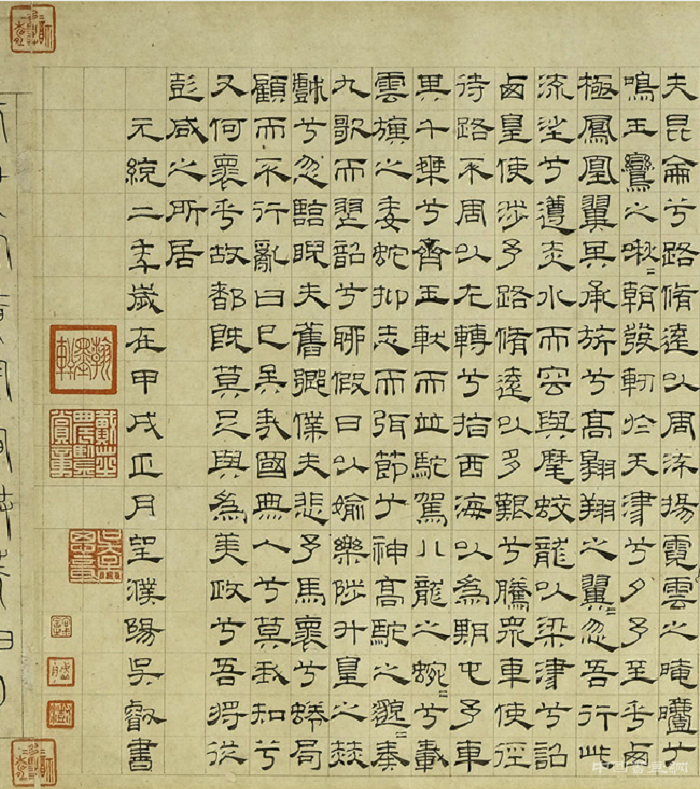 夫昆侖兮路脩遠以周流揚霓雲之晻曖兮
鳴玉鸞之啾〻朝發軔於天津兮夕予至乎西
極鳳凰翼其承旂兮高翱翔之翼〻忽吾行此
流沙兮遵赤水而容與麾蛟龍以梁津兮詔
西皇使涉予路脩遠以多艱兮騰衆車使徑
待路不周以左轉兮指西海以為期屯予車
其千乘兮齊玉軑而並馳駕八龍之蜿〻兮載
雲旗之委蛇抑志而弭節兮神高馳之邈〻奏
九歌而舞韶兮聊假日以媮樂陟升皇之赫
戲兮忽臨睨夫舊鄉僕夫悲予馬懷兮蜷局
顧而不行亂曰已矣哉國無人兮莫我知兮
又何懷乎故都既莫足與為美政兮吾將從
彭咸之所居
元統二年歲在甲戌正月望濮陽吳叡書
翰墨軒